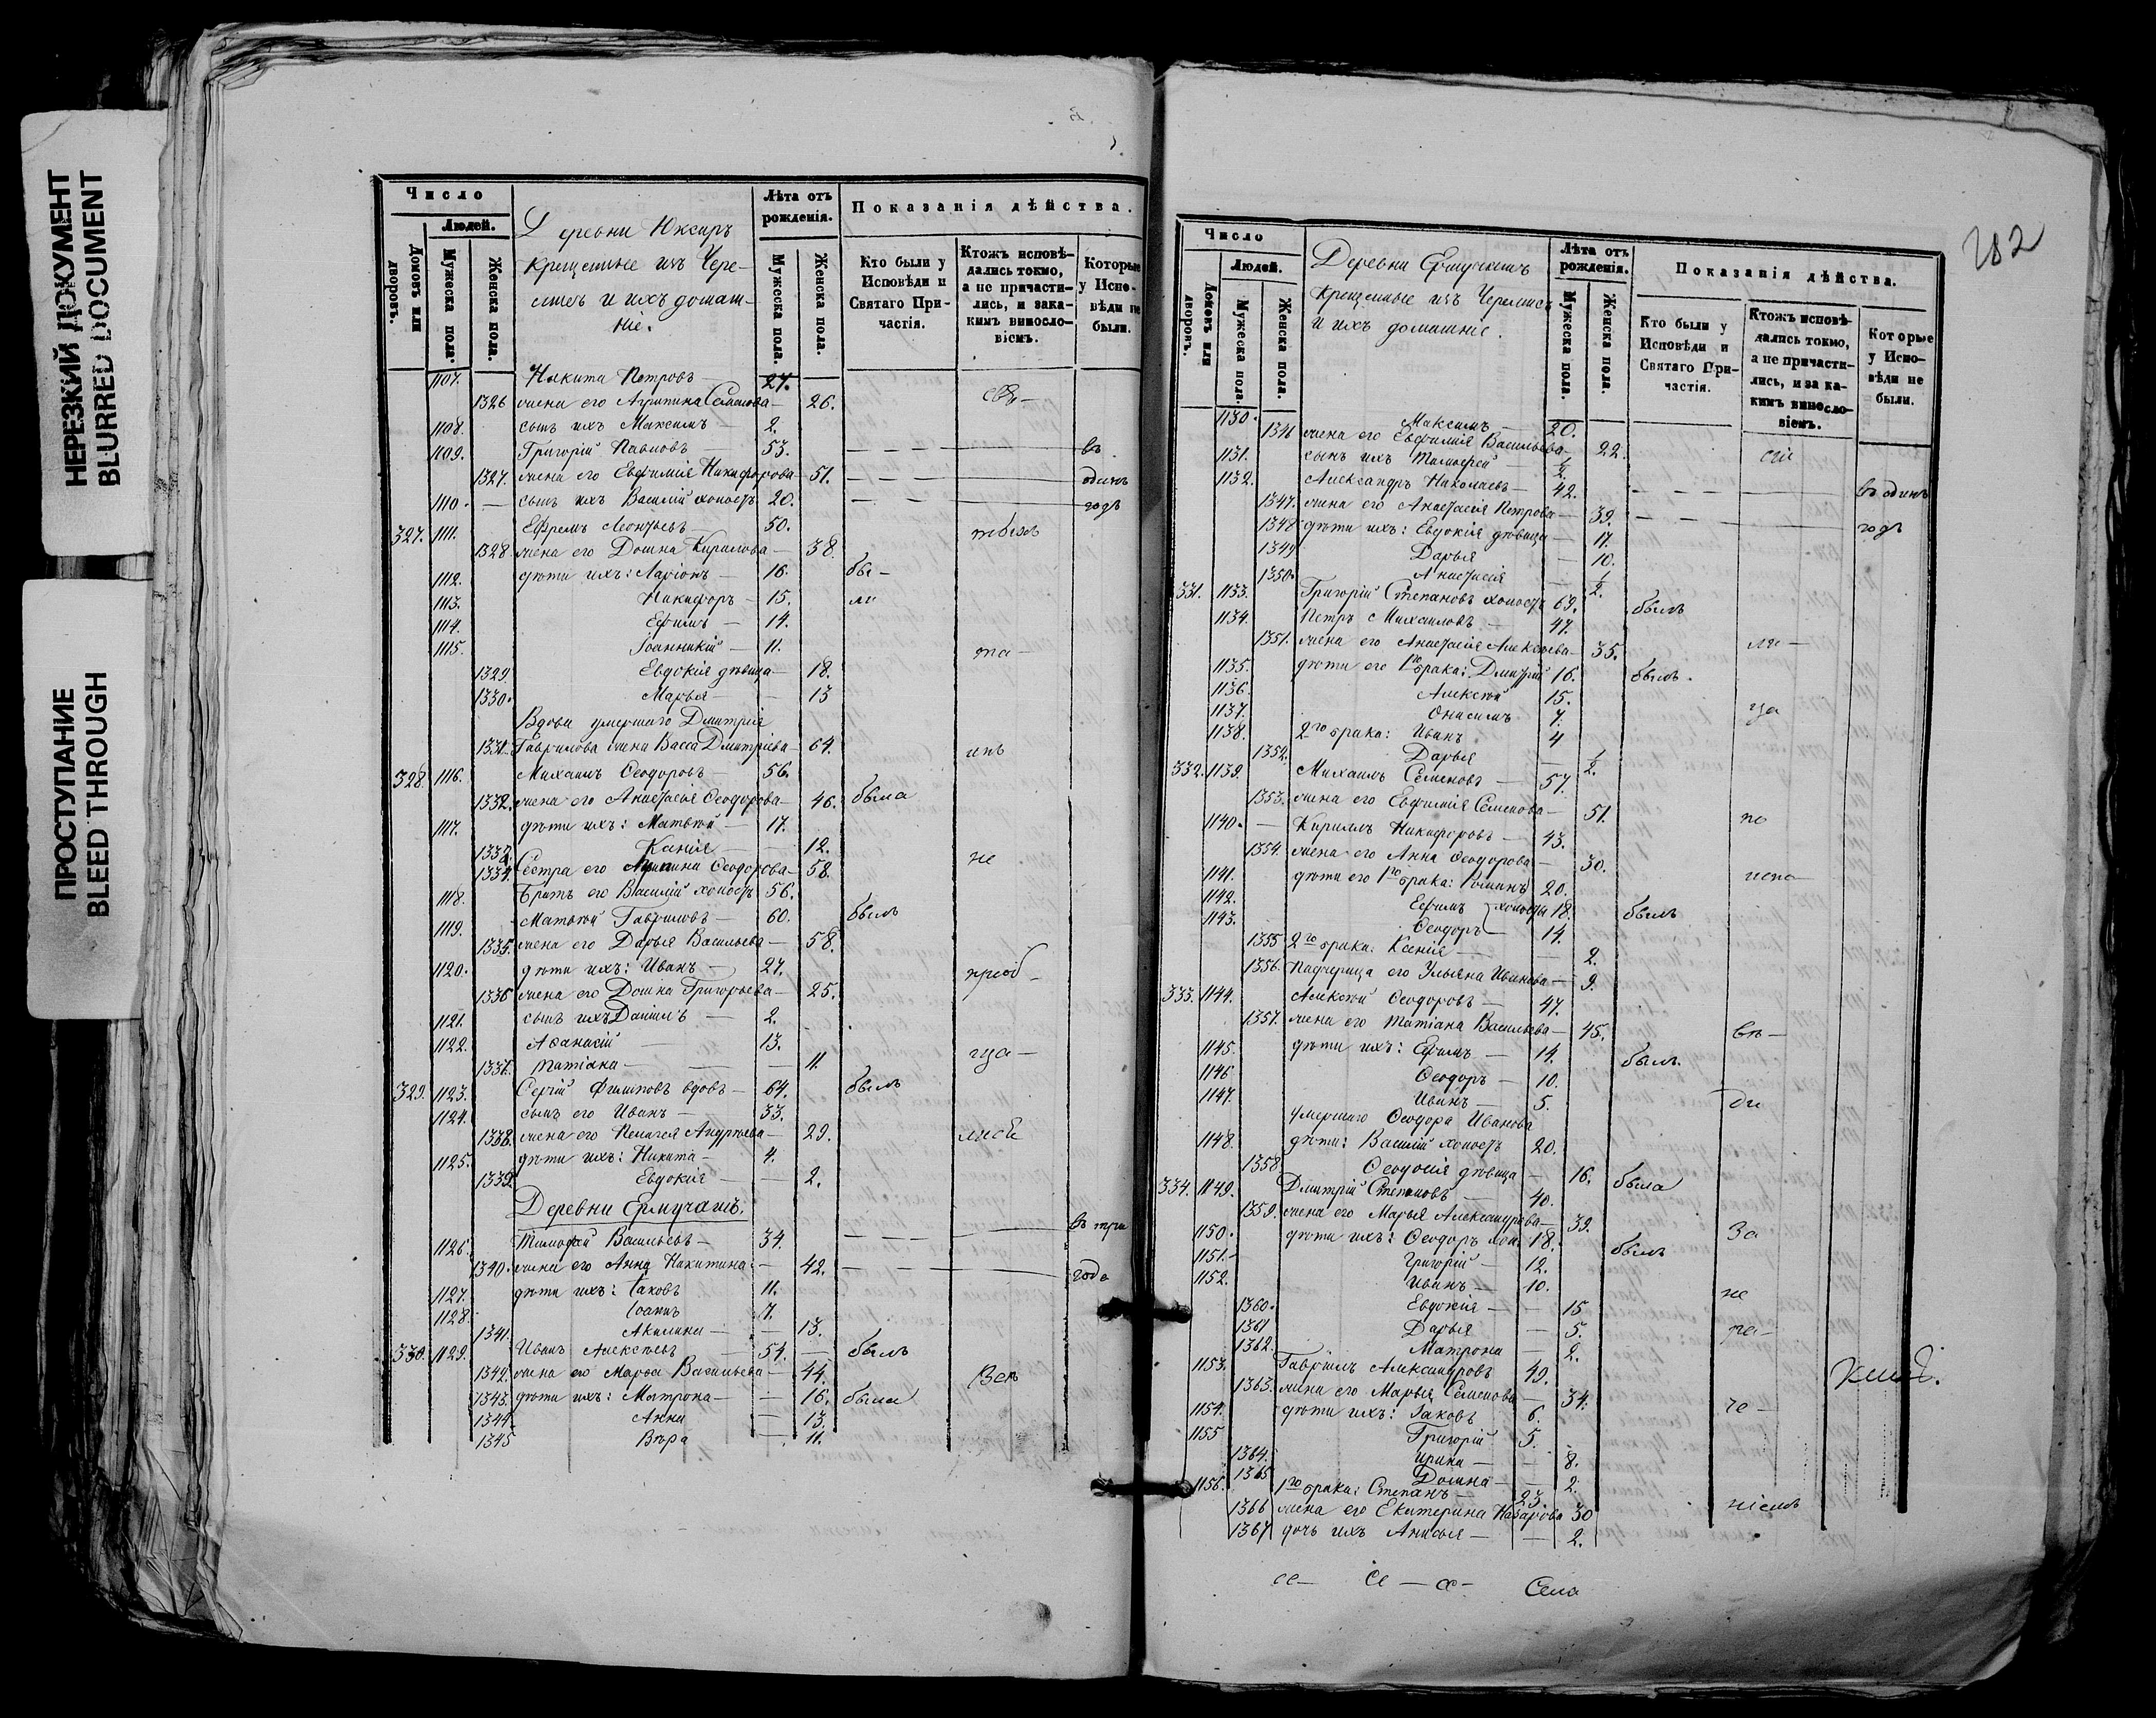 НЕРЕЗКИЙ ДОКУМЕНТ
BLURRED DOCUMENT
ПРОСТУПАНИЕ
BLEED THROUGH
Число
Людей.
Домовъ или дворовъ.
Мужеска пола.
Женска пола.
Деревни Юксаръ
крещеные изъ Чере-
мисъ и ихъ домаш-
ніе.
Лѣта отъ рожденія.
Мужеска пола.
Женска пола.
Показанія дѣйства.
Кто были у Исповѣди и Святаго При-частія.
Ктожъ исповѣ-дались токмо, а не причасти-лись, и зака-кимъ виносло-віемъ.
Которые у Испо-вѣди не были.
1107. Никита Петровъ — 27.
1326 жена его Агрипина Семенова — 26.
1108. сынъ ихъ Максимъ — 2.
1109. Григорій Павловъ 53. въ
1327. жена его Евфимія Никифорова 51. одинъ
1110. — сынъ ихъ Василій холостъ 20. годъ
327. 1111. Ефремъ Леонтьевъ — 50.
1328 жена его Домна Кирилова — 38.
1112. дѣти ихъ: Ларіонъ — 16. бы-
1113. Никифоръ — 15. ли
1114. Ефимъ — 14.
1115. Іоанникій — 11. та-
1329. Евдокія дѣвица — 18.
1330. Марья — 13
Вдова умершаго Дмитрія
1331. Гаврилова жена Васса Дмитріева — 64.
328. 1116. Михаилъ Ѳеодоровъ — 56.
1332. жена его Анастасія Ѳеодорова — 46. была
1117. дѣти ихъ: Матвѣй — 17.
1333. Ксенія — 12.
1334. Сестра его Ѳеодорова — 58. не
1118. Братъ его Василій холостъ 56.
1119. Матвѣй Гавриловъ — 60. былъ
1335. жена его Дарья Васильева — 58.
1120. дѣти ихъ: Иванъ — 27.
1336 жена его Домна Григорьева — 25.
1121. сынъ ихъ Даніилъ — 2.
1122. Аѳанасій — 13.
1337. Татіана — 11. ща-
329. 1123. Сергій Филиповъ вдовъ — 64. былъ
1124. сынъ его Иванъ — 33.
1338. жена его Пелагея Андреева — 29.
1125. дѣти ихъ: Никита — 4.
1339. Евдокія — 2.
Деревни Ермучашъ.
1126. Тимофей Васильевъ — 34. въ три
1340. жена его Анна Никитина — 42. года
1127. дѣти ихъ: Іаковъ 11.
1128. Іоаннъ 7.
1341. Акилина — 13.
330. 1129. Иванъ Алексѣевъ 54. — былъ
1342. жена его Марья Васильева — 44.
1343. дѣти ихъ: Матрона — 16. была
1344. Анна — 13.
1345 Вѣра — 11.
Число
Людей.
Домовъ или дворовъ.
Мужеска пола.
Женска пола.
Деревни Ермучашъ
крещеные изъ Черемисъ
и ихъ домашніе.
Лѣта отъ рожденія.
Мужеска пола.
Женска пола.
Показанія дѣйства.
Кто были у Исповѣди и Святаго При-частія.
Ктожъ исповѣ-дались токмо, а не причасти-лись, и за ка-кимъ виносло-віемъ.
Которые у Испо-вѣди не были.
1130. Максимъ 20.
1346 жена его Евфимія Васильева — 22.
1131. сынъ ихъ Тимофей — 1/2.
1132. Александръ Николаевъ — 42. въ одинъ
1347. жена его Анастасія Петрова — 39. годъ
1348 дѣти ихъ: Евдокія дѣвица — 17.
1349 Дарья — 10.
1350. Анастасія — 1/2.
331. 1133. Григорій Степановъ холостъ 63. былъ
1134. Петръ Михаиловъ — 47.
1351. жена его Анастасія Алексѣева — 35.
1135. дѣти его 1го брака: Дмитрій 16. былъ.
1136. Алексѣй 15.
1137. Онисимъ 7. ща
1138. 2го брака: Иванъ 4
1352. Дарья — 1/2.
332. 1139. Михаилъ Семеновъ — 57.
1353. жена его Евфимія Семенова — 51.
1140. — Кирилъ Никифоровъ — 43.
1354. жена его Анна Ѳеодорова — 30.
1141. дѣти его 1го брака: Романъ 20.
1142. Ефимъ холосты 18. былъ
1143. Ѳеодоръ — 14.
1355 2го брака: Ксенія — 2.
1356. Падчерица его Ульяна Иванова — 9.
333. 1144. Алексѣй Ѳеодоровъ — 47.
1357. жена его Татіана Васильева — 45.
1145. дѣти ихъ: Ефимъ — 14. былъ.
1146 Ѳеодоръ — 10.
1147. Иванъ — 5.
умершаго Ѳеодора Иванова
1148. дѣти: Василій холостъ 20.
1358. Ѳеодосія дѣвица — 16. была
334. 1149. Дмитрій Степановъ — 40.
1359. жена его Марья Александрова — 39. За
1150. дѣти ихъ: Ѳеодоръ хол. 18. былъ
1151. Григорій — 12.
1152. Иванъ — 10. не
1360. Евдокія — 15
1361 Дарья — 5.
1362. Матрона — 2.
1153. Гавріилъ Александровъ 40.
1363. жена его Марья Семенова — 34.
1154. дѣти ихъ: Іаковъ 6. че-
1155 Григорій 5.
1364. Ирина — 8.
1365 Домна — 2.
1156. 1го брака: Степанъ — 23.
1366 жена его Екатерина Назарова 30 ніемъ
1367 дочь ихъ Анисья — 2.
Села